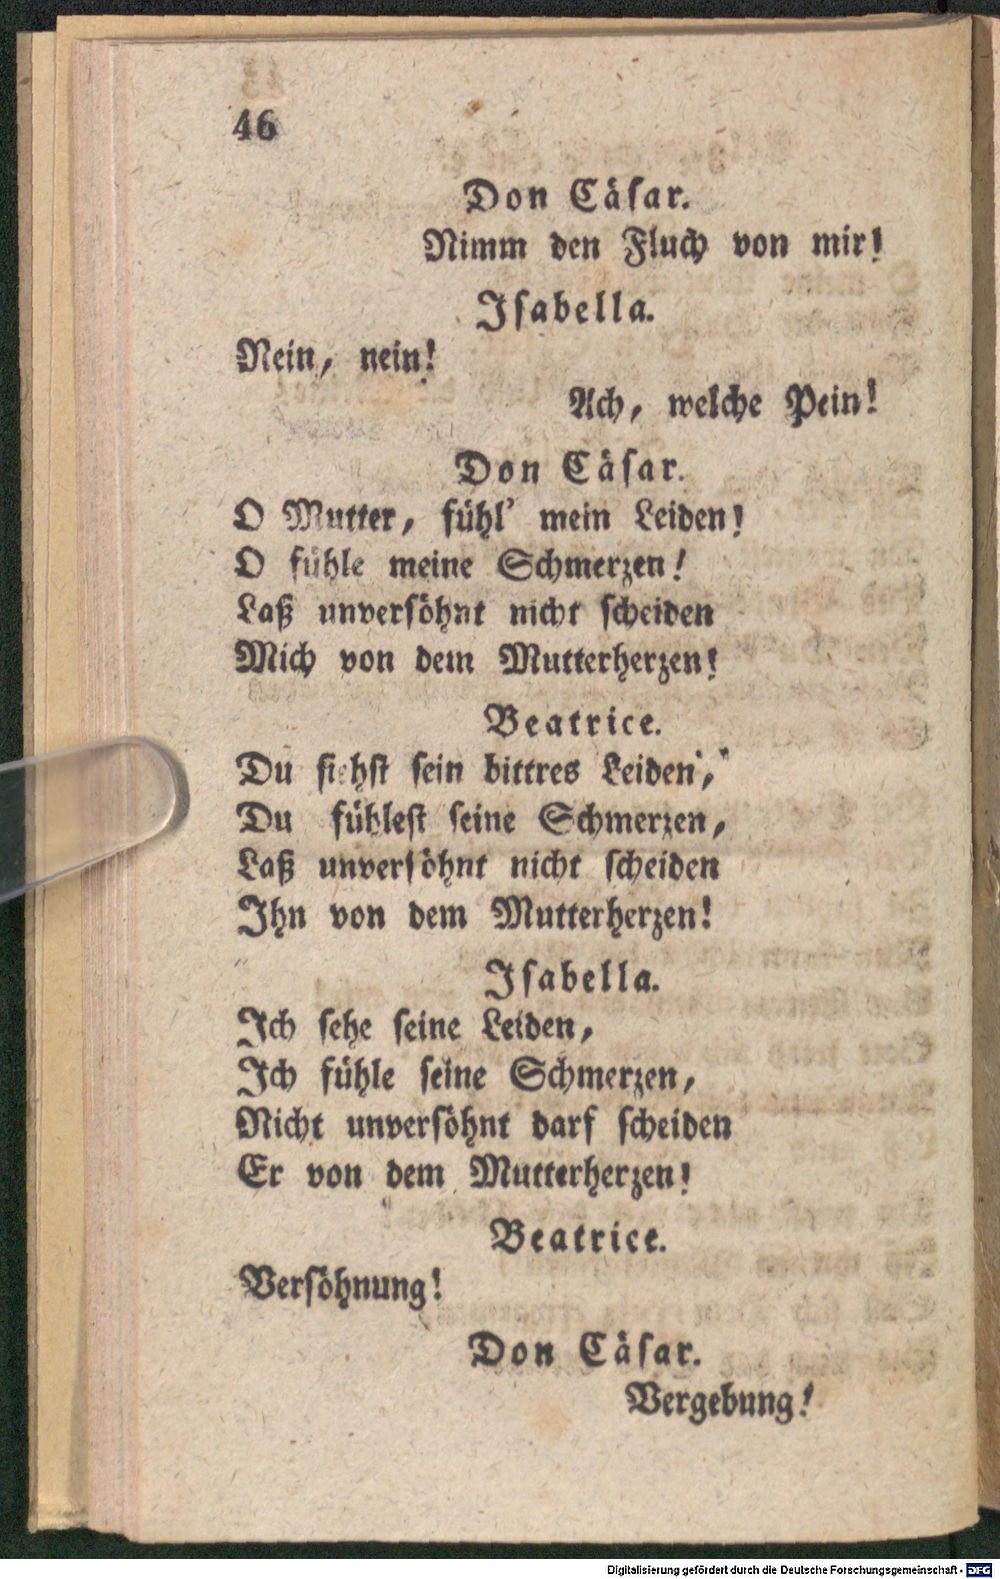 46
Don Cäsar.
Nimm den Fluch von mir!
Isabella.
Nein, nein!
Ach, welche Pein!
Don Cäsar.
O Mutter, fühl' mein Leiden!
O fühle meine Schmerzen!
Laß unversöhnt nicht scheiden
Mich von dem Mutterherzen!
Beatrice.
Du siehst sein bittres Leiden,
Du fühlest seine Schmerzen,
Laß unversöhnt nicht scheiden
Ihn von dem Mutterherzen!
Isabella.
Ich sehe seine Leiden,
Ich fühle seine Schmerzen,
Nicht unversöhnt darf scheiden
Er von dem Mutterherzen!
Beatrice.
Versöhnung!
Don Cäsar.
Vergebung!
Digitalisierung gefördert durch die Deutsche Forschungsgemeinschaft - DFG